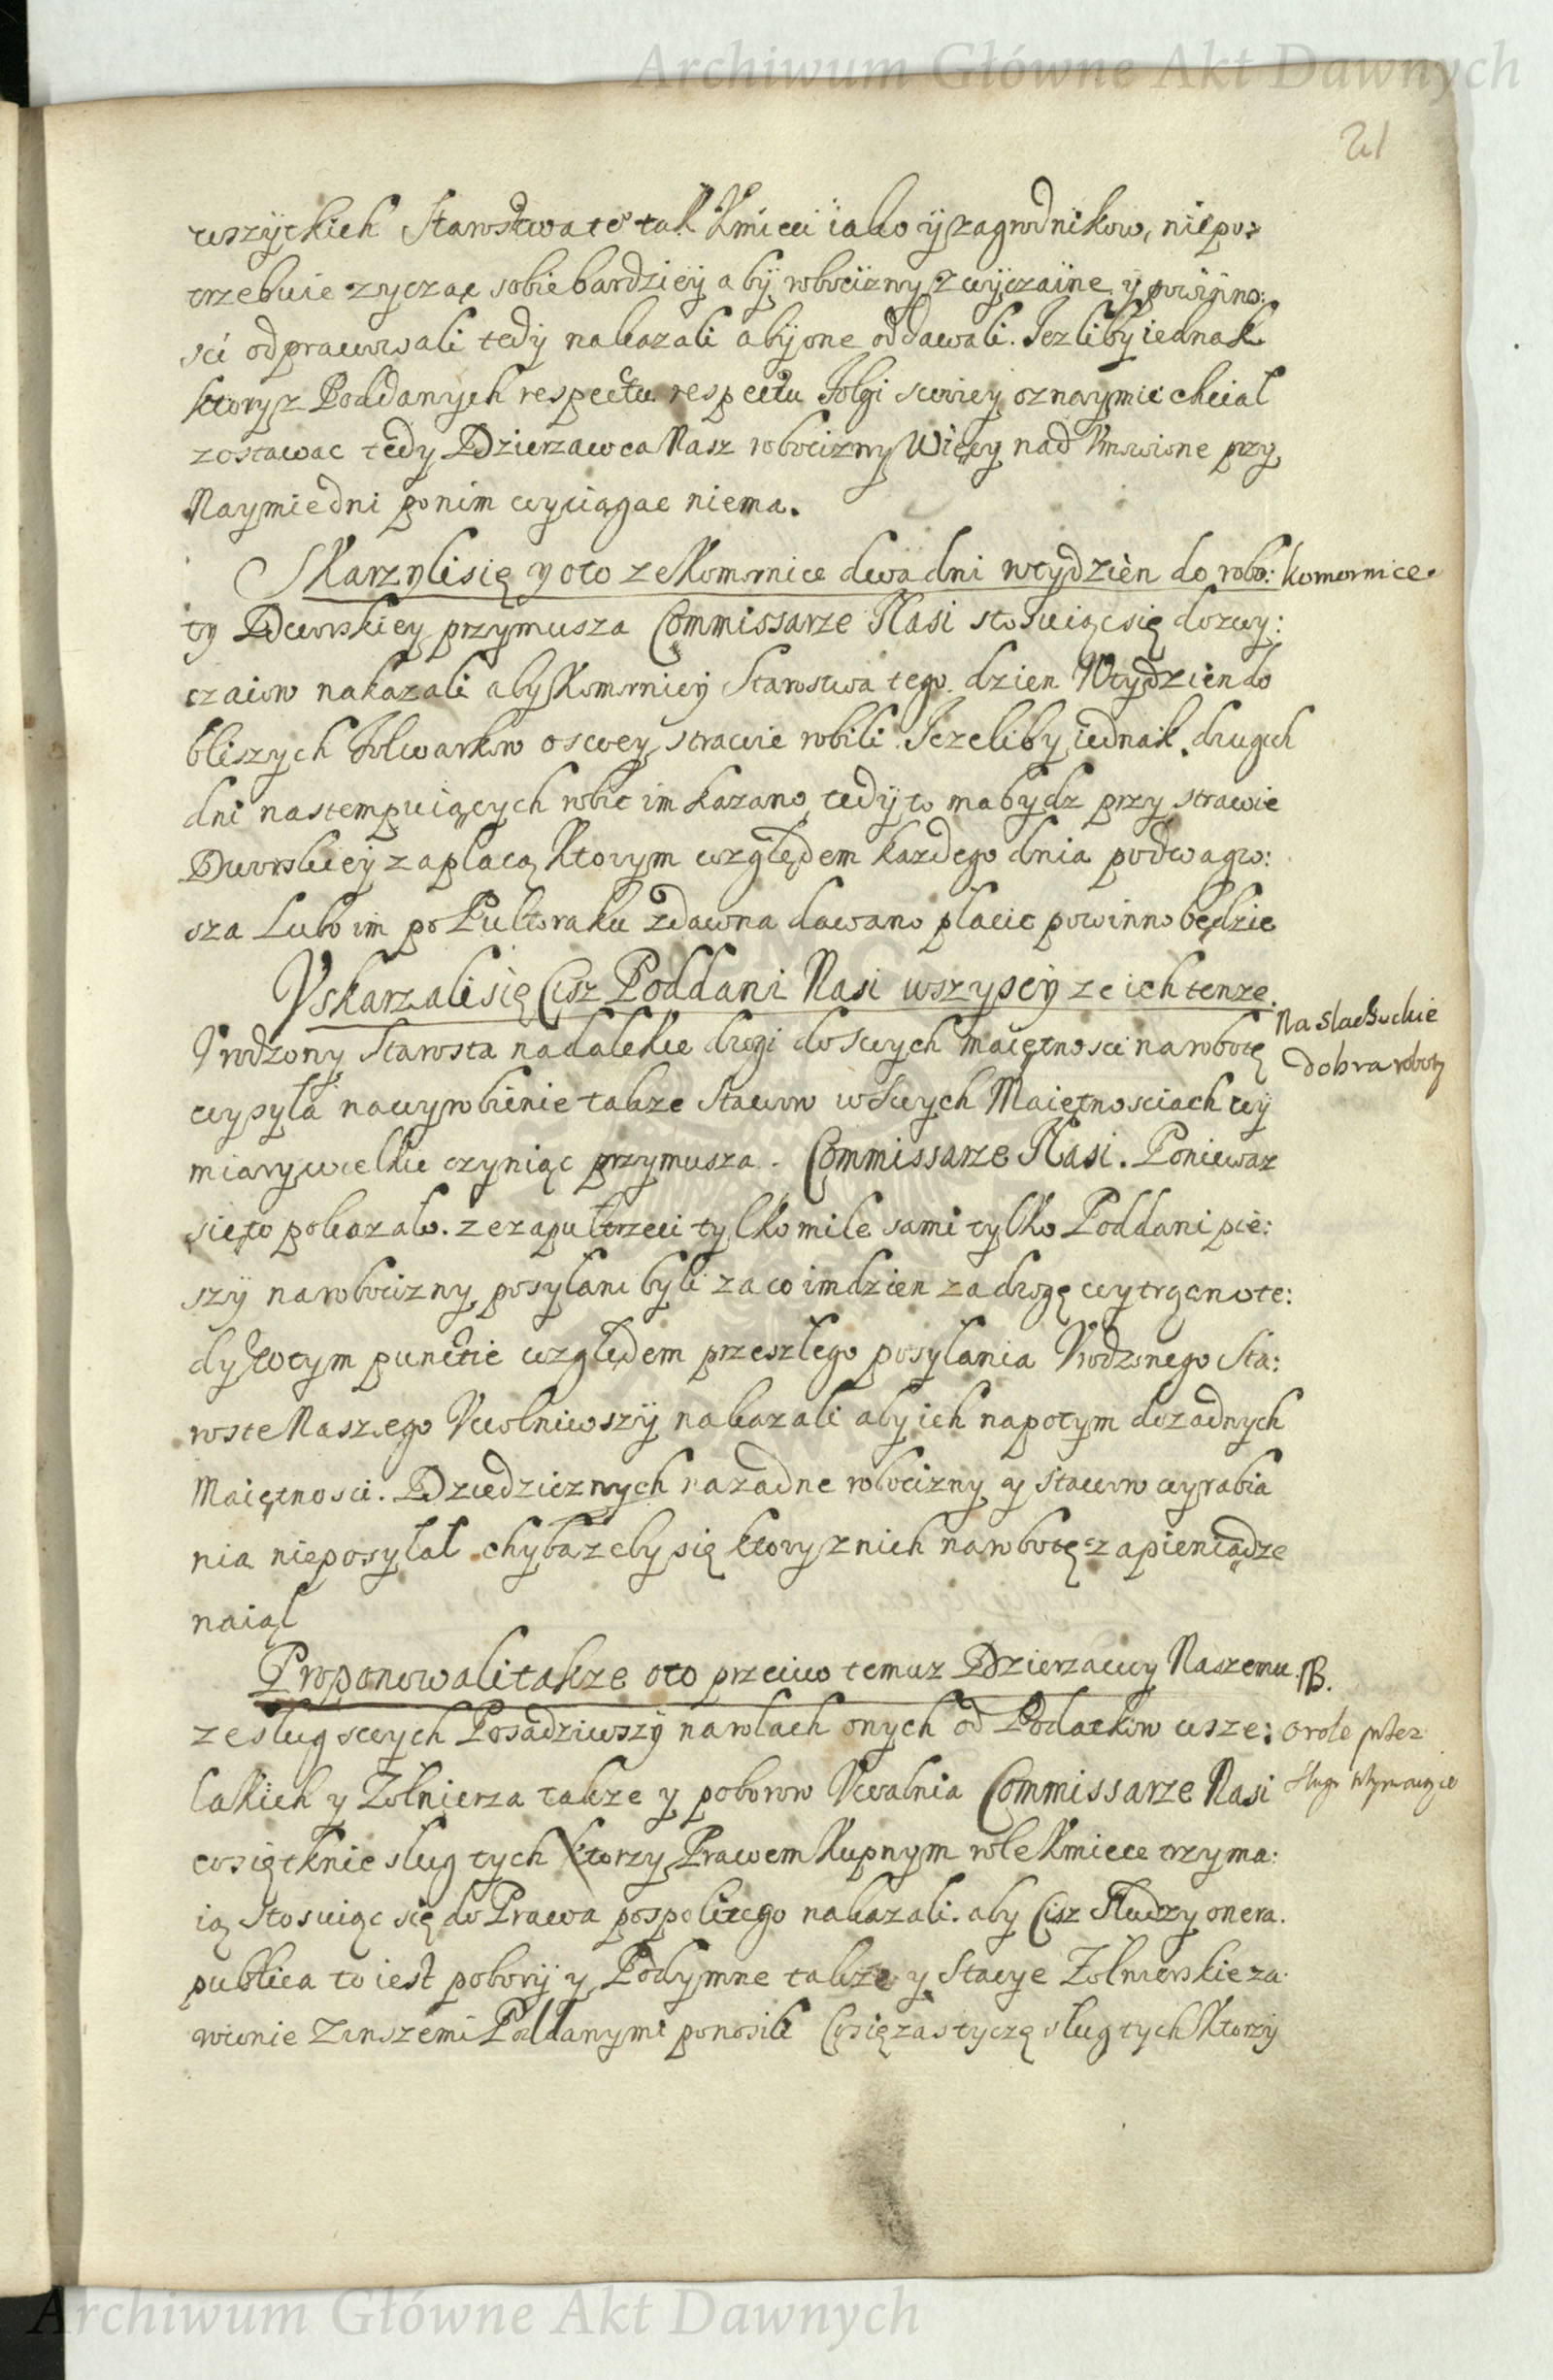 Archiwum Główne Akt Dawnych
21
wszyckich Starostwa te tak Kmieci iako ÿ zagrodnikow, niepo:
trzebuie zycząc sobie bardzieÿ abÿ robocizny zwÿczaÿne ÿ powinno:
sci odprawowali tedÿ nakazali abÿ one oddawali. Iezliby iednak
ktory z Poddanych respectu respectu Folgi swoieÿ oznaymic chcial
zostawac tedy Dzierzawca Nasz robocizny Więcy nad Vmowione przy
Naymie dni ponim wyciągac niema.
Skarzyli się y oto ze Komornice dwa dni wtydzień do robo: komornice.
ty Dworskiey przymusza Commissarze Nasi stosuiąc się do zwy:
czaiow nakazali aby Komornicÿ Starostwa tego dzien Wtydzien do
bliszych Folwarkow oswey strawie robili. Iezeliby iednak drugich
dni nastempuiących robic im kazano tedÿ to ma bydz przy strawie
Dworskieÿ zaplacą Ktorym względem kazdego dnia podwa gro:
sza Lubo im po Pultoraku zdawna dawano placic powinno będzie
Vskarzali się Cisz Poddani Nasi wszyscÿ ze ich tenze
Na slacheckie
Vrodzony Starosta nadalekie drogi do swych maiętnosci narobotę
dobra roboty
wysyla nawyrobienie takze Stawow wswych Maiętnosciach wÿ
miary wielkie czyniąc przymusza. Commissarze Nasi. Poniewaz
się to pokazalo. ze zapultrzeci tylko mile sami tylko Poddani pie:
szÿ narobocizny posylani byli zaco im dzien zadrogę wytrącono te:
dy wtym punctie względem przeszlego posylania Vrodzonego Sta:
roste Naszego Vwolniwszÿ nakazali aby ich napotym dozadnych
Maiętnosci. Dziedzicznych nazadne robocizny y Stawow wyrabia
nia nieposylal chybazeby się ktory znich narobotę zapieniądze
naiąl
Proponowali takze oto przeciwo temuz Dzierzawcy Naszemu NB.
ze slug swych Posadziwszÿ narolach onych od Podatkow wsze: o role przez
lakich y Zolnierza takze y poborow Vwalnia Commissarze Nasi
cosię tknie slug tych ktorzy Prawem Kupnym role Kmiece trzyma:
ią Stosuiąc się do Prawa pospolitego nakazali. aby Cisz Sludzy onera
publica to iest poborÿ y Podymne takze y Stacye Zolnierskie za
rownie Zinszemi Poddanymi ponosili Cosię zas tyczę slug tych Ktorzÿ
Archiwum Główne Akt Dawnych